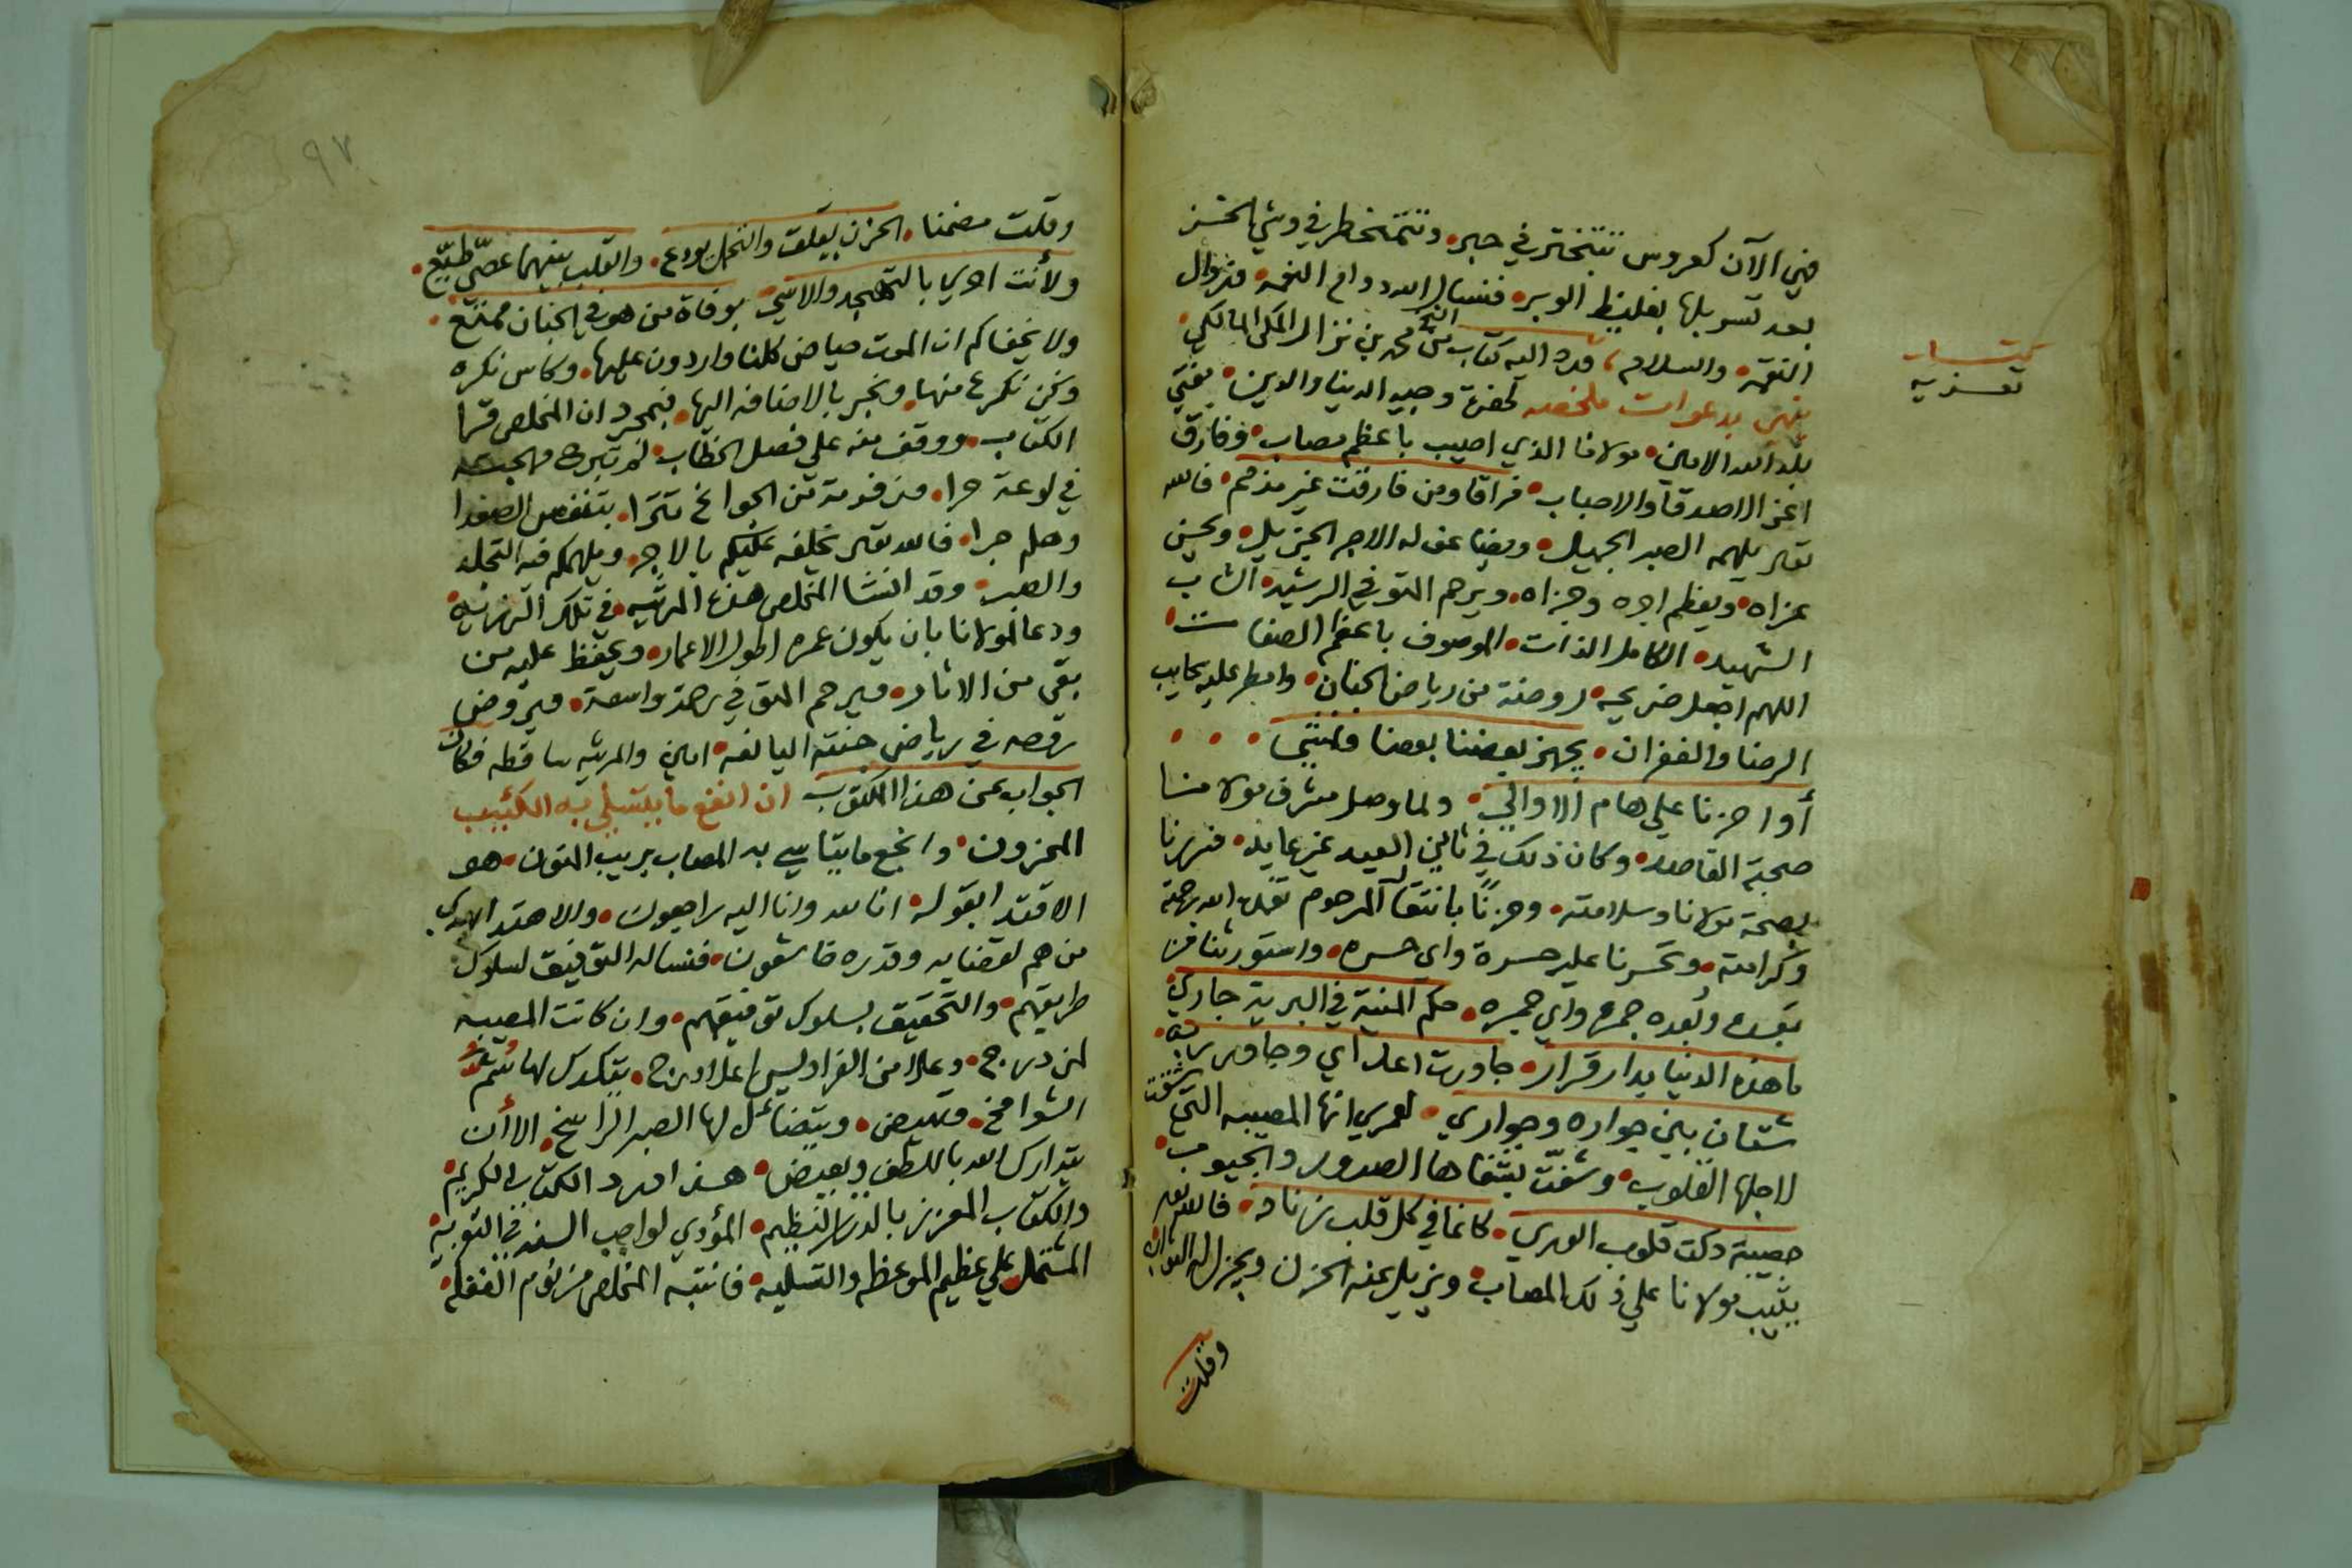 فهي الآن كعروس تتبختر في حبر، وتتمخطر في وشي الحسن
بعد تسربلها بغليظ الوبر، فنسال الله دوام النعمه، وزوال
النقمه، والسلام، ورد اليه كتاب من الشيخ محمد بن نزال المكي المالكي،
ينهي بدعوات ملخصه لحضرة وجيه الدنيا والدين، مفتي
بلد الله الامين، مولانا الذي اصيب باعظم مصاب، وفارق
اعز الاصدقا والاحباب، فراقا ومن فارقت غير مذمم، فالله
تعالى يلهمه الصبر الجميل، ويضاعف له الاجر الجزيل، ويحسن
عزاه، ويعظم اجره وجزاه، ويرحم المتوفي الرشيد، الشاب
الشهيد، الكامل الذات، الموصوف باعظم الصفات،
اللهم اجعل ضريحه روضة من رياض الجنان، وامطر عليه سحايب
الرضا والغفران، يجهز بعضنا بعضا وتمشي
أواخرنا علي هام الاوالي، ولما وصل مشرف مولانا
صحبة القاصد، وكان ذلك في ثالث العيد غير عايد، فسررنا
بصحة مولانا وسلامته، وحزنا بانتقال المرحوم تغمده الله برحمته
وكرامته، وتحسرنا عليه حسرة واى حسره، واستورثنا من
بعده وبعده جمرة واي جمره، حكم المنية في البرية جاري،
ما هذه الدنيا بدار قرار، جاورت اعداي وجاور ربه،
شتان بين جواره وجواري، لعمري انها المصيبه التي شقت
لاجلها القلوب، وشقت بشفاها الصدور والجيوب،
مصيبة دكت قلوب الورى، كانما في كل قلب زناد، فالله تعالى
يثيب مولانا علي ذلك المصاب، ويزيل عنه الحزن ويجزل له الثواب،
وقلت
كتاب
تعزيه
٩٧
وقلت مضمنا، الحزن يقلق والتجمل يردع، والقلب بينهما عصي طيع،
ولأنت ادري بالتهجد والاسي، بوفاة من هو في الجنان ممتع،
ولا يخفاكم ان الموت حياض كلنا واردون عليها، وكاس نكره
ونحن نكرع منها، ونجبر بالاضافه اليها، فبمجرد ان المخلص قرا
الكتاب، ووقف منه علي فصل الخطاب، لم تبرح مهجته
في لوعة حرا، وزفرة من الجوانح تترا، بتنفس الصعدا
وهلم جرا، فالله تعالى يخلفه عليكم بالاجر، ويلهمكم فيه التجلد
والصبر، وقد انشا المخلص هذه المرثيه، في تلك الرزيه،
ودعا لمولانا بان يكون عمره اطول الاعمار، ويحفظ عليه من
بقي من الاثار، ويرحم المتوفي رحمة واسعة، ويروض
روحه في رياض جنته اليانعه، امين والمرثيه ساقطه فكان
الجواب عن هذا المكتوب ان انفع ما يتسلى به الكئيب
المحزون، وانجع ما يتاسي به المصاب بريب المنون، هو
الاقتدا بقوله انا لله وانا اليه راجعون، والاهتدا بهدى
من هم لقضايه وقدره خاشعون، فنساله التوفيق لسلوك
طريقهم، والتحقيق بسلوك توفيقهم، وان كانت المصيبه
لمن درج، وعلا من الفراديس اعلا درج، يتدكدك لها شم
الشوامخ، وتهيض، ويتضائل لها الصبر الراسخ، الا أن
يتدارك الله باللطف ويعيض، هذا ورد الكتاب الكريم،
والكتاب المعزز بالدر النظيم، المؤدي لواجب السنه في التعزيه،
المشتمل علي عظيم الموعظه والتسليه، فانتبه المخلص من نوم الغفله،